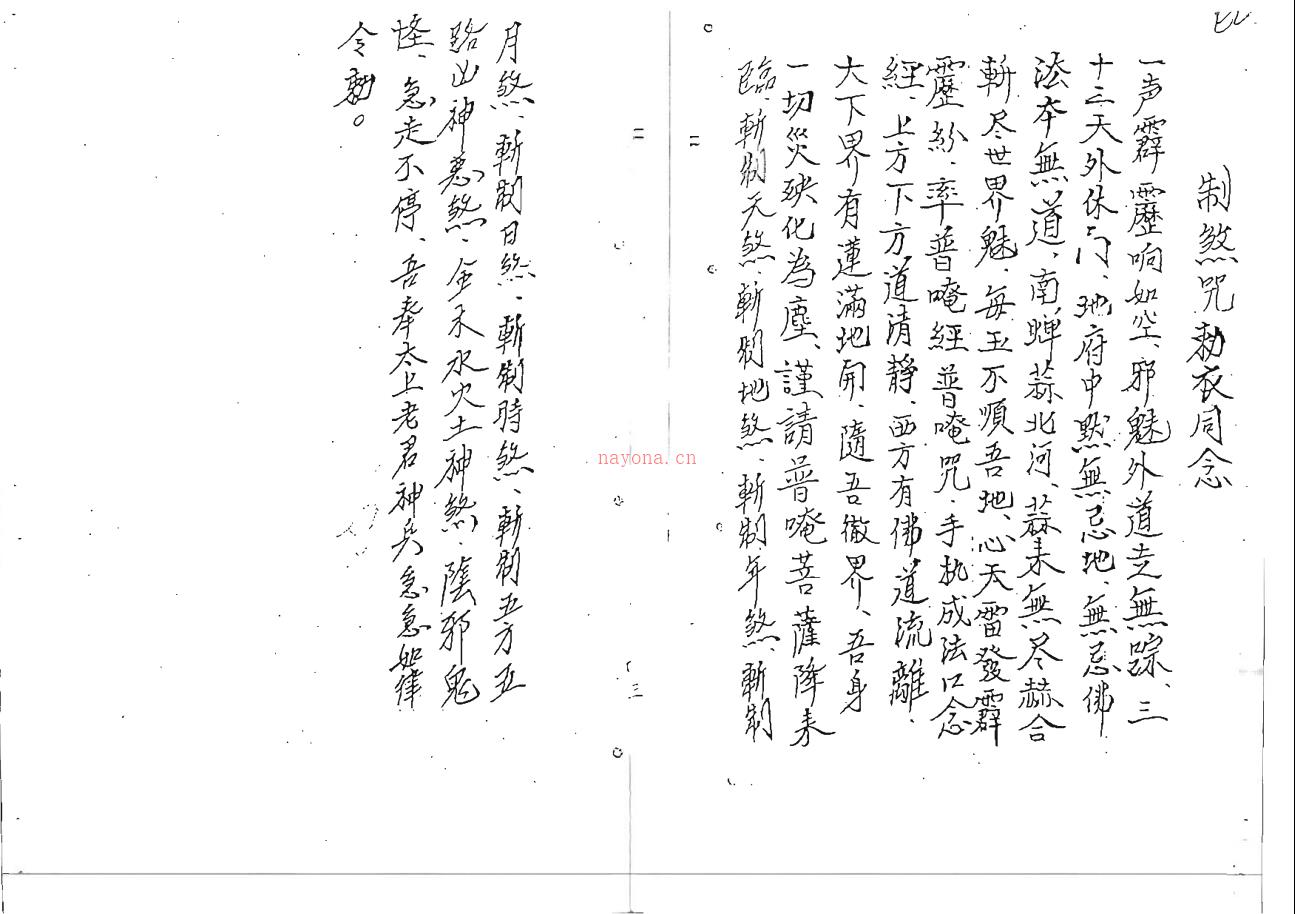 制煞咒勅衣同念
一声霹靂响如空、邪魅外道走無踪、三
十三天外休门、地府中點無忌地、無忌佛
法本無道、南蝉蒜北河、蒜来無尽赫合
斬尽世界魅、每玉不順吾地、心天雷發霹
靂紛、率普唵經普唵咒、手执成法口念
經、上方下方道清静、西方有佛道流離、
大下界有蓮滿地開、隨吾徹界、吾身
一切災殃化為塵、謹請普唵菩薩降来
臨、斬制天煞、斬制地煞、斬制年煞、斬制
月煞、斬制日煞、斬制時煞、斬制五方五
路凶神惡煞、金木水火土神煞、陰邪鬼
怪、急走不停、吾奉太上老君神兵急急如律
令勅。
二
二
三
nayona.cn